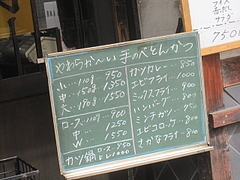 やわらか〜い 手のべとんかつ
小…110g 950
中…150g 1350
大…190g 1550
ロース…110g…700
中…1250
W…1550
カツ鍋 ロース 950
ヒレ 1000
カツカレー…850
エビフライ…1000
ミックスフライ…900
ハンバーグ…900
ミンチカツ…800
エビコロッケ…800
さかなフライ…800
750円